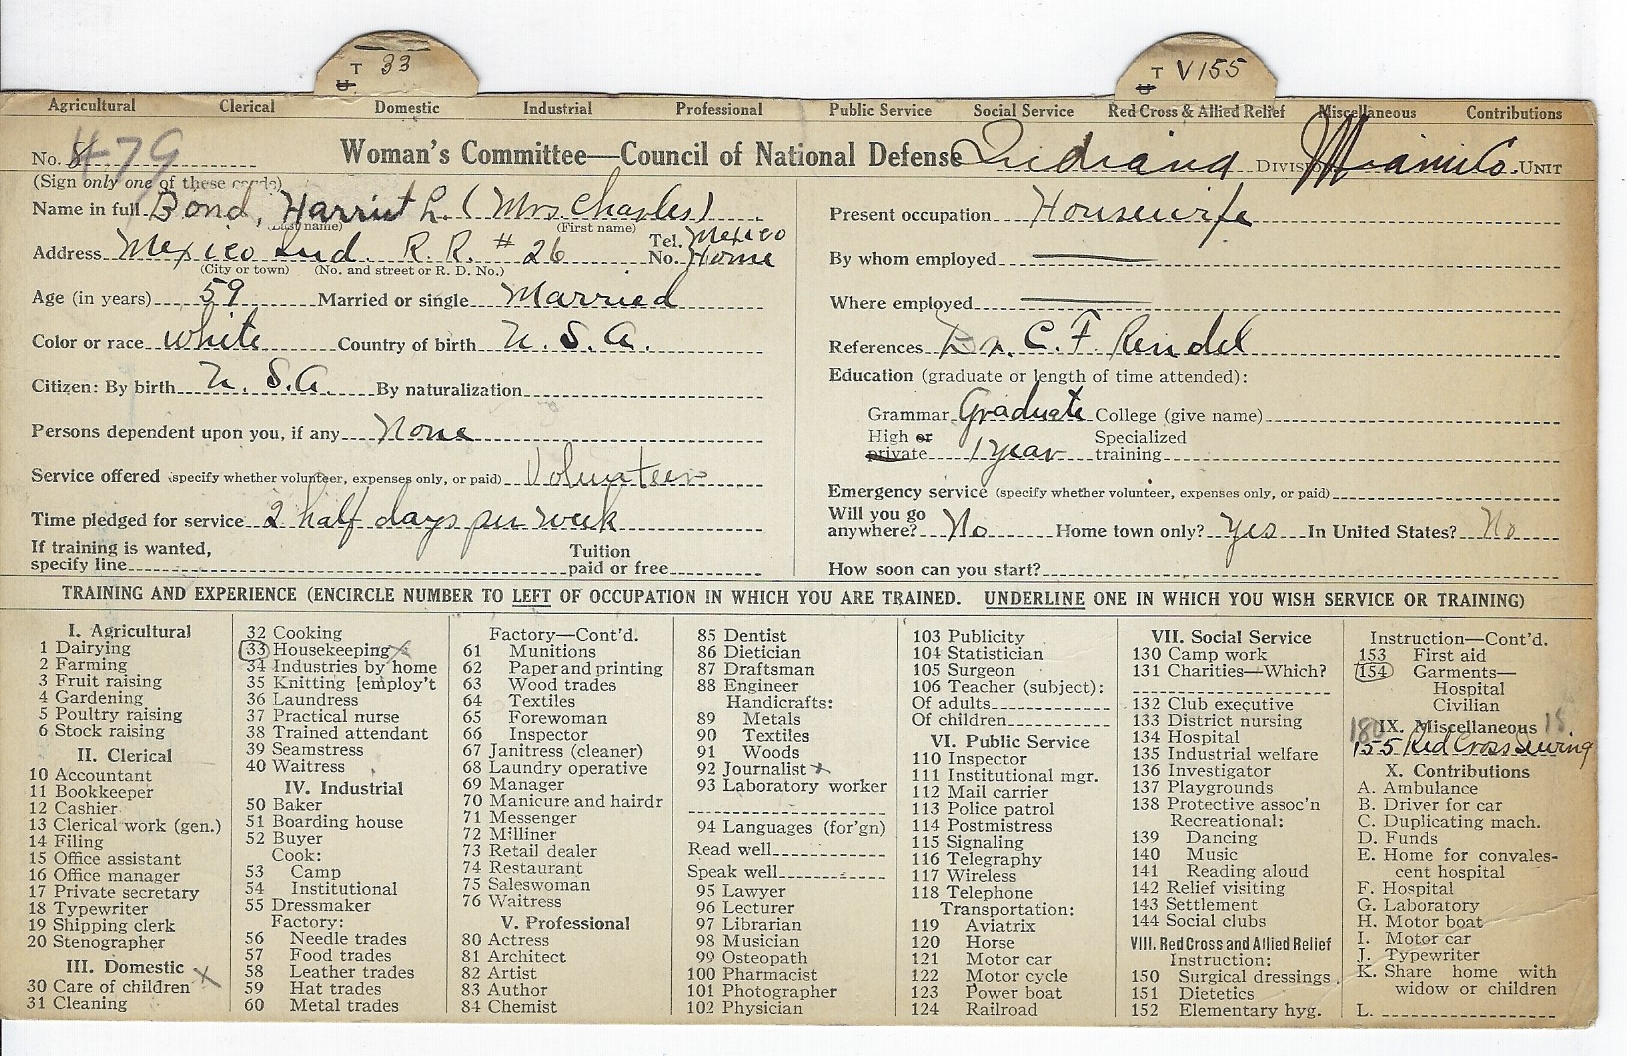 T 33 T V155
U U
Agricultural Clerical Domestic Industrial Professional Public Service Social Service Red Cross & Allied Relief Miscellaneous Contributions
No. 479 Woman's Committee—Council of National Defense Indiana Division Miami Co. Unit
(Sign only one of these cards)
Name in full Bond, Harriet L. (Mrs. Charles)
(Last name) (First name)
Address Mexico Ind. R. R. # 26 Tel. No. Mexico Home
(City or town) (No. and street or R. D. No.)
Age (in years) 59 Married or single Married
Color or race white Country of birth U. S. A.
Citizen: By birth U. S. A. By naturalization
Persons dependent upon you, if any None
Service offered (specify whether volunteer, expenses only, or paid) Volunteer
Time pledged for service 2 half days per week
If training is wanted, specify line Tuition paid or free
Present occupation Housewife
By whom employed
Where employed
References Dr. C. F. Rendel
Education (graduate or length of time attended):
Grammar Graduate College (give name)
High or private 1 year Specialized training
Emergency service (specify whether volunteer, expenses only, or paid)
Will you go anywhere? No Home town only? Yes In United States? No
How soon can you start?
TRAINING AND EXPERIENCE (ENCIRCLE NUMBER TO LEFT OF OCCUPATION IN WHICH YOU ARE TRAINED. UNDERLINE ONE IN WHICH YOU WISH SERVICE OR TRAINING)
I. Agricultural
1 Dairying
2 Farming
3 Fruit raising
4 Gardening
5 Poultry raising
6 Stock raising
II. Clerical
10 Accountant
11 Bookkeeper
12 Cashier
13 Clerical work (gen.)
14 Filing
15 Office assistant
16 Office manager
17 Private secretary
18 Typewriter
19 Shipping clerk
20 Stenographer
III. Domestic x
30 Care of children
31 Cleaning
32 Cooking
33 Housekeeping x
34 Industries by home
35 Knitting [employ't
36 Laundress
37 Practical nurse
38 Trained attendant
39 Seamstress
40 Waitress
IV. Industrial
50 Baker
51 Boarding house
52 Buyer
Cook:
53 Camp
54 Institutional
55 Dressmaker
Factory:
56 Needle trades
57 Food trades
58 Leather trades
59 Hat trades
60 Metal trades
Factory—Cont'd.
61 Munitions
62 Paper and printing
63 Wood trades
64 Textiles
65 Forewoman
66 Inspector
67 Janitress (cleaner)
68 Laundry operative
69 Manager
70 Manicure and hairdr
71 Messenger
72 Milliner
73 Retail dealer
74 Restaurant
75 Saleswoman
76 Waitress
V. Professional
80 Actress
81 Architect
82 Artist
83 Author
84 Chemist
85 Dentist
86 Dietician
87 Draftsman
88 Engineer
Handicrafts:
89 Metals
90 Textiles
91 Woods
92 Journalist x
93 Laboratory worker
94 Languages (for'gn)
Read well
Speak well
95 Lawyer
96 Lecturer
97 Librarian
98 Musician
99 Osteopath
100 Pharmacist
101 Photographer
102 Physician
103 Publicity
104 Statistician
105 Surgeon
106 Teacher (subject):
Of adults
Of children
VI. Public Service
110 Inspector
111 Institutional mgr.
112 Mail carrier
113 Police patrol
114 Postmistress
115 Signaling
116 Telegraphy
117 Wireless
118 Telephone
Transportation:
119 Aviatrix
120 Horse
121 Motor car
122 Motor cycle
123 Power boat
124 Railroad
VII. Social Service
130 Camp work
131 Charities—Which?
132 Club executive
133 District nursing
134 Hospital
135 Industrial welfare
136 Investigator
137 Playgrounds
138 Protective assoc'n
Recreational:
139 Dancing
140 Music
141 Reading aloud
142 Relief visiting
143 Settlement
144 Social clubs
VIII. Red Cross and Allied Relief
Instruction:
150 Surgical dressings
151 Dietetics
152 Elementary hyg.
Instruction—Cont'd.
153 First aid
154 Garments—
Hospital
Civilian
180 IX. Miscellaneous 15
155 Red Cross Sewing
X. Contributions
A. Ambulance
B. Driver for car
C. Duplicating mach.
D. Funds
E. Home for convales-
cent hospital
F. Hospital
G. Laboratory
H. Motor boat
I. Motor car
J. Typewriter
K. Share home with
widow or children
L.